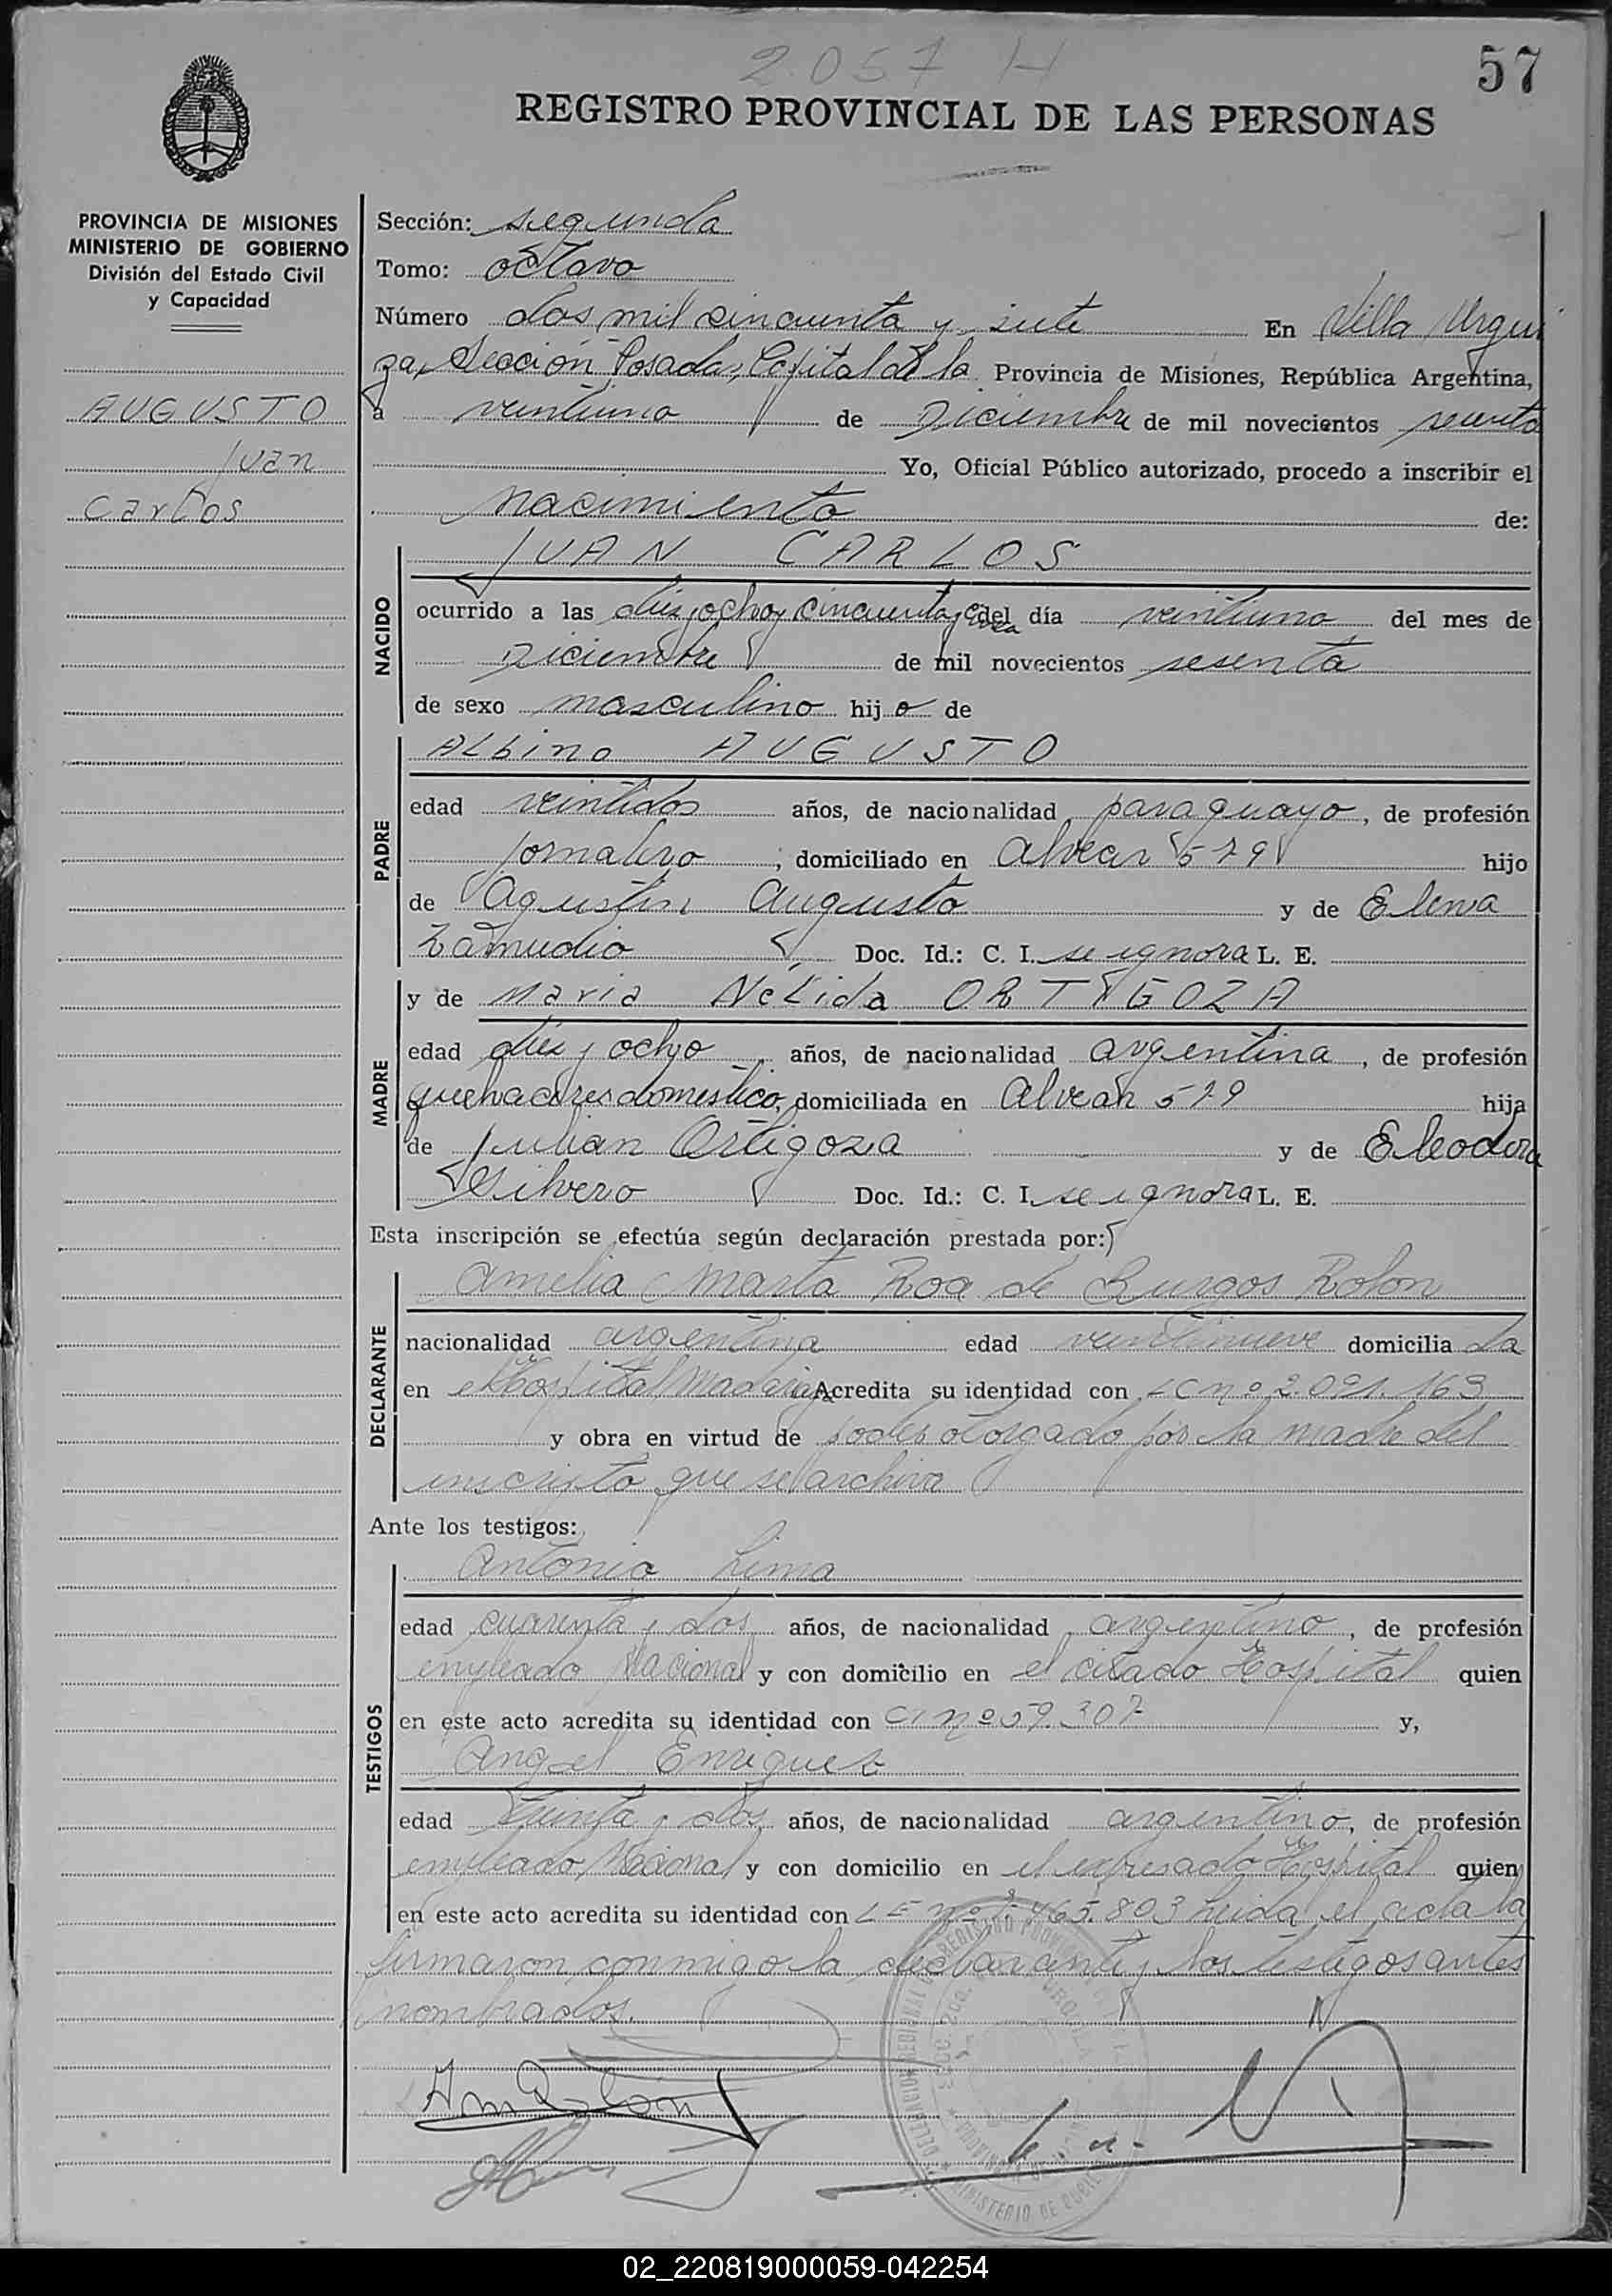 2057 H
57
REGISTRO PROVINCIAL DE LAS PERSONAS
PROVINCIA DE MISIONES
MINISTERIO DE GOBIERNO
División del Estado Civil
y Capacidad
AUGUSTO
Juan
Carlos
Sección: segunda
Tomo: octavo
Número dos mil cincuenta y siete En Villa Urqui
za, Sección Posadas, Capital de la Provincia de Misiones, República Argentina,
a veintiuno de Diciembre de mil novecientos sesenta
Yo, Oficial Público autorizado, procedo a inscribir el
nacimiento de:
JUAN CARLOS
NACIDO
ocurrido a las diez y ocho y cincuenta y cinco del día veintiuno del mes de
Diciembre de mil novecientos sesenta
de sexo masculino hijo de
Albino AUGUSTO
PADRE
edad veintidos años, de nacionalidad paraguayo, de profesión
jornalero, domiciliado en Alvear 579 hijo
de Agustin Augusto y de Elena
Zamudio Doc. Id.: C. I. se ignora L. E.
y de Maria Nélida ORTIGOZA
MADRE
edad diez y ocho años, de nacionalidad argentina, de profesión
quehaceres domestico, domiciliada en Alvear 579 hija
de Julian Ortigoza y de Eleodora
Silvero Doc. Id.: C. I. se ignora L. E.
Esta inscripción se efectúa según declaración prestada por:
Amelia Marta Roa de Burgos Rolon
DECLARANTE
nacionalidad argentina edad veintinueve domicilia da
en el Hospital Madariaga Acredita su identidad con LC nº 2.091.163
y obra en virtud de poder otorgado por la madre del
inscripto que se archiva
Ante los testigos:
Antonio Lima
TESTIGOS
edad cuarenta y dos años, de nacionalidad argentino, de profesión
empleado Nacional y con domicilio en el citado Hospital quien
en este acto acredita su identidad con CI nº 59.307 y,
Angel Enriquez
edad treinta y dos años, de nacionalidad argentino, de profesión
empleado Nacional y con domicilio en el expresado Hospital quien
en este acto acredita su identidad con LE nº 465.803 Leida el acta la
firmaron conmigo la declarante y los testigos antes
nombrados.
02_220819000059-042254